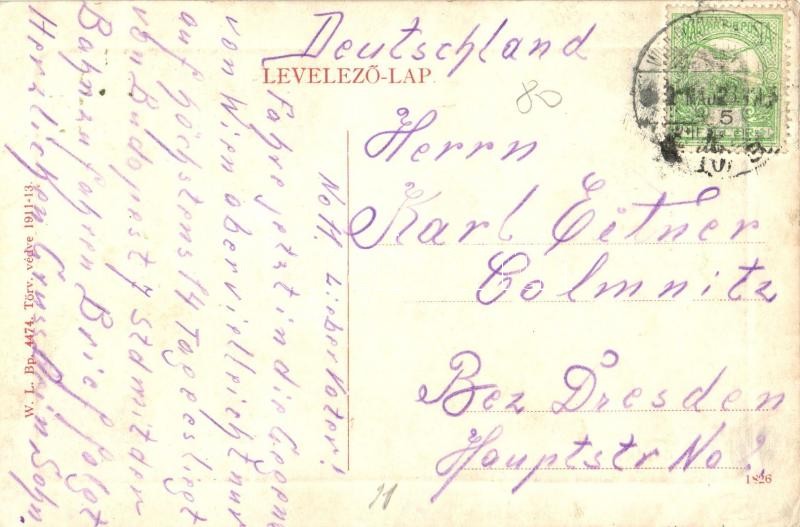 Deutschland
LEVELEZŐ-LAP
80
MAGYAR KIR. POSTA
Herrn
Karl Eitner
Colmnitz
Bez Dresden
Hauptstr No
1826
No 11. Lieber Vater!
Fahre jetzt in die Gegend
von Wien aber vielleicht nur
auf höchstens 14 Tage es liegt
von Budapest 7 std mit der
Bahn zu fahren Brief folgt
Herzlichen Gruss Dein Sohn.
W. L. Bp. 4474. Törv. védve 1911-13.